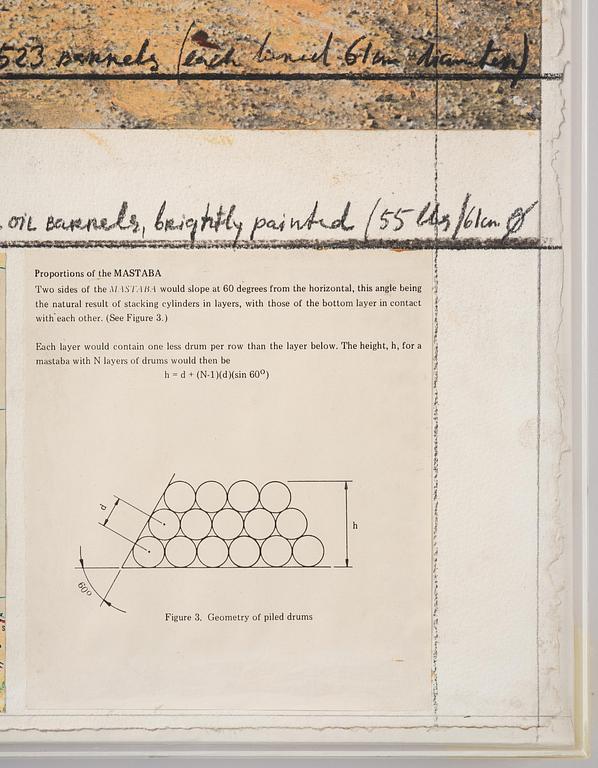 523 barrels (each barrel 61cm diameter)
oil barrels, brightly painted (55 lbs/61cm ø
Proportions of the MASTABA
Two sides of the MASTABA would slope at 60 degrees from the horizontal, this angle being
the natural result of stacking cylinders in layers, with those of the bottom layer in contact
with each other. (See Figure 3.)
Each layer would contain one less drum per row than the layer below. The height, h, for a
mastaba with N layers of drums would then be
h = d + (N-1)(d)(sin 60°)
d
h
60°
Figure 3. Geometry of piled drums